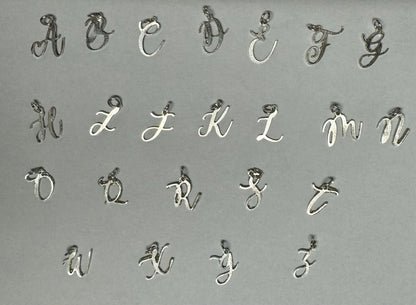 A B C D E F G
H I J K L M N
O Q R S T
W X Y Z